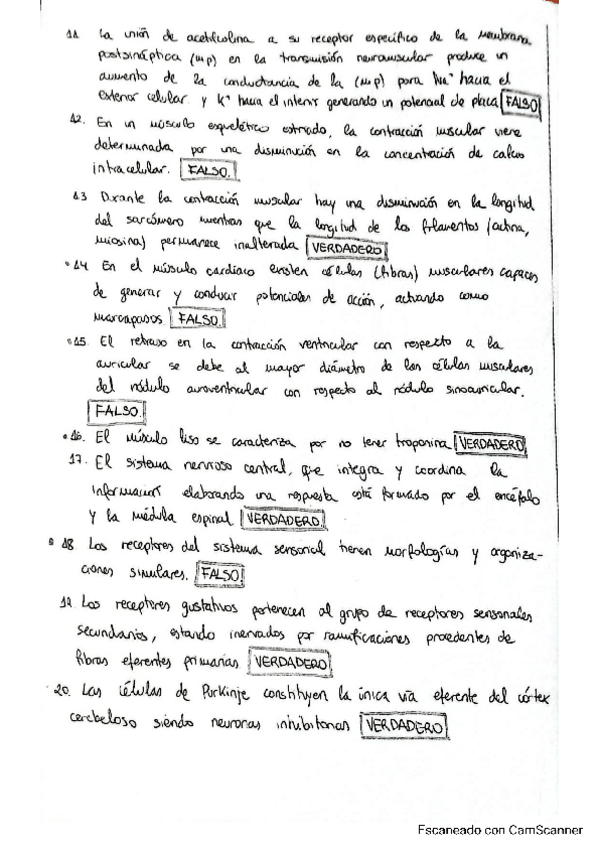 11. La unión de acetilcolina a su receptor específico de la membrana
postsináptica (mp) en la transmisión neuromuscular produce un
aumento de la conductancia de la (mp) para Na⁺ hacia el
exterior celular y K⁺ hacia el interior generando un potencial de placa FALSO
12. En un músculo esquelético estriado, la contracción muscular viene
determinada por una disminución en la concentración de calcio
intracelular. FALSO.
13 Durante la contracción muscular hay una disminución en la longitud
del sarcómero mientras que la longitud de los filamentos (actina,
miosina) permanece inalterada VERDADERO
14 En el músculo cardiaco existen células (fibras) musculares capaces
de generar y conducir potenciales de acción, actuando como
marcapasos FALSO.
15. El retraso en la contracción ventricular con respecto a la
auricular se debe al mayor diámetro de las células musculares
del nódulo auroventricular con respecto al nódulo sinoauricular.
FALSO.
16. El músculo liso se caracteriza por no tener troponina VERDADERO
17. El sistema nervioso central, que integra y coordina la
información elaborando una respuesta está formado por el encéfalo
y la médula espinal VERDADERO
18 Los receptores del sistema sensorial tienen morfologías y organiza-
ciones similares. FALSO
19. Los receptores gustativos pertenecen al grupo de receptores sensoriales
secundarios, estando inervados por ramificaciones procedentes de
fibras eferentes primarias VERDADERO
20. Las células de Purkinje constituyen la única vía eferente del córtex
cerebeloso siendo neuronas inhibitorias VERDADERO
Escaneado con CamScanner